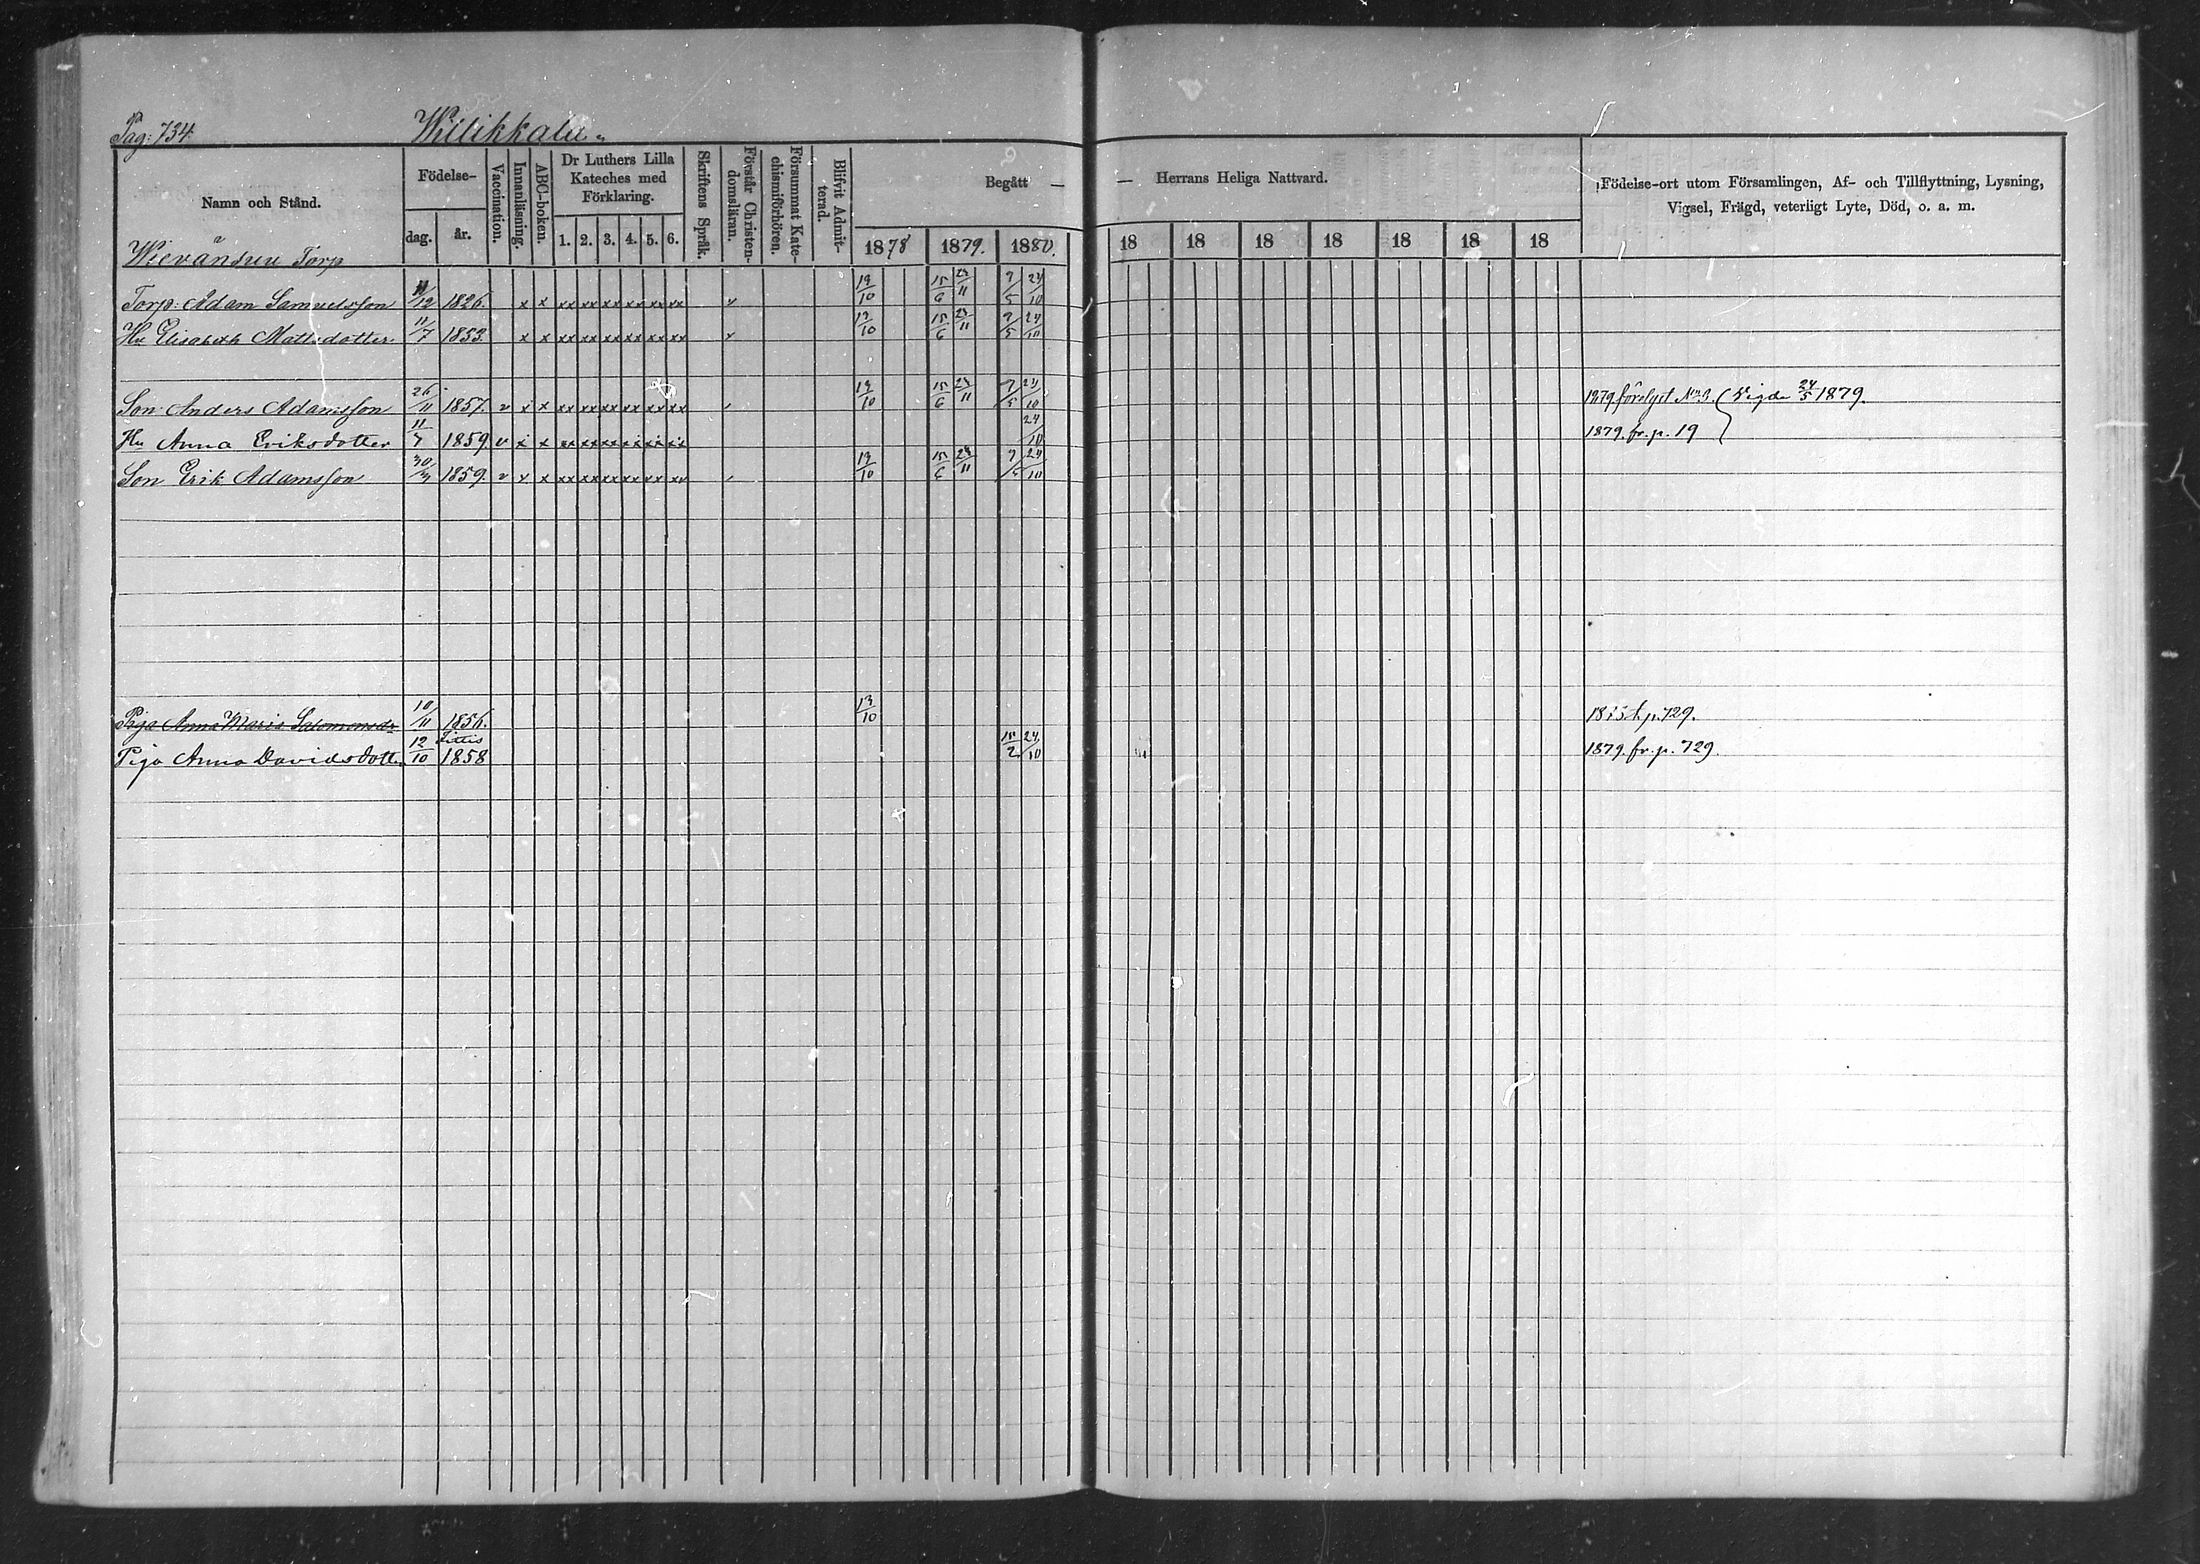 Pag: 734.
Willikkala.
Namn och Stånd.
Födelse-
dag.
år.
Vaccination.
Innanläsning.
ABC-boken.
Dr Luthers Lilla
Kateches med
Förklaring.
1. 2. 3. 4. 5. 6.
Skriftens Språk.
Förstår Christen-
domsläran.
Försummat Kate-
chismiförhören.
Blifvit Admit-
terad.
Begått —
— Herrans Heliga Nattvard.
1878 1879. 1880.
18 18 18 18 18 18 18
Födelse-ort utom Församlingen, Af- och Tillflyttning, Lysning,
Vigsel, Frägd, veterligt Lyte, Död, o. a. m.
Torp
Torp: Adam Samuelsson /12 1826. x x xx xx xx xx xx xx 19/10 15/6 23/11 9/5 24/10
Hu Elisabeth Mattsdotter 11/7 1853. x x xx xx xx xx xx xx 19/10 15/6 23/11 9/5 24/10
Son Anders Adamsson 26/11 1857. v x x xx xx xx xx xx xx 19/10 15/6 23/11 9/5 24/10 1879 N:o 3. Vigde 24/5 1879.
Hu Anna Eriksdotter 1859. v x x xx xx xx xx xx xx 24/10 1879. fr. p. 19
Son Erik Adamsson 1859. v x x xx xx xx xx xx xx 19/10 15/6 23/11 9/5 24/10
Piga Anna Maria Salomonsdr 10/11 1856. 19/10 t. p. 729.
Littis
Piga Anna Davidsdott. 12/10 1858 15/2 24/10 1879. fr. p. 729.